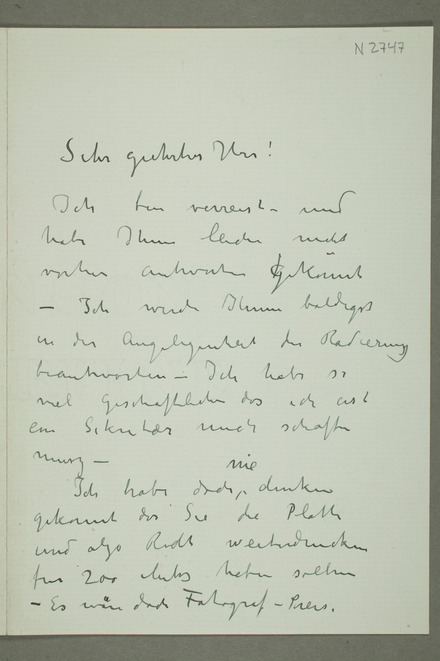 N 2747
Sehr geehrter Herr!
Ich bin verreist – und
habe Ihnen leider nicht
vorher antworten gekönnt
– Ich werde Ihnen baldigst
in der Angelegenheit der Radierung
beantworten – Ich habe so
viel Geschäftliches das ich erst
ein Sekretär mich schaffen
muss –
nie
Ich habe doch denken
gekonnt das Sie die Platte
und also Recht weiterdrucken
für 200 Mks haben sollen
– Es wäre doch Fotograf – Preis.